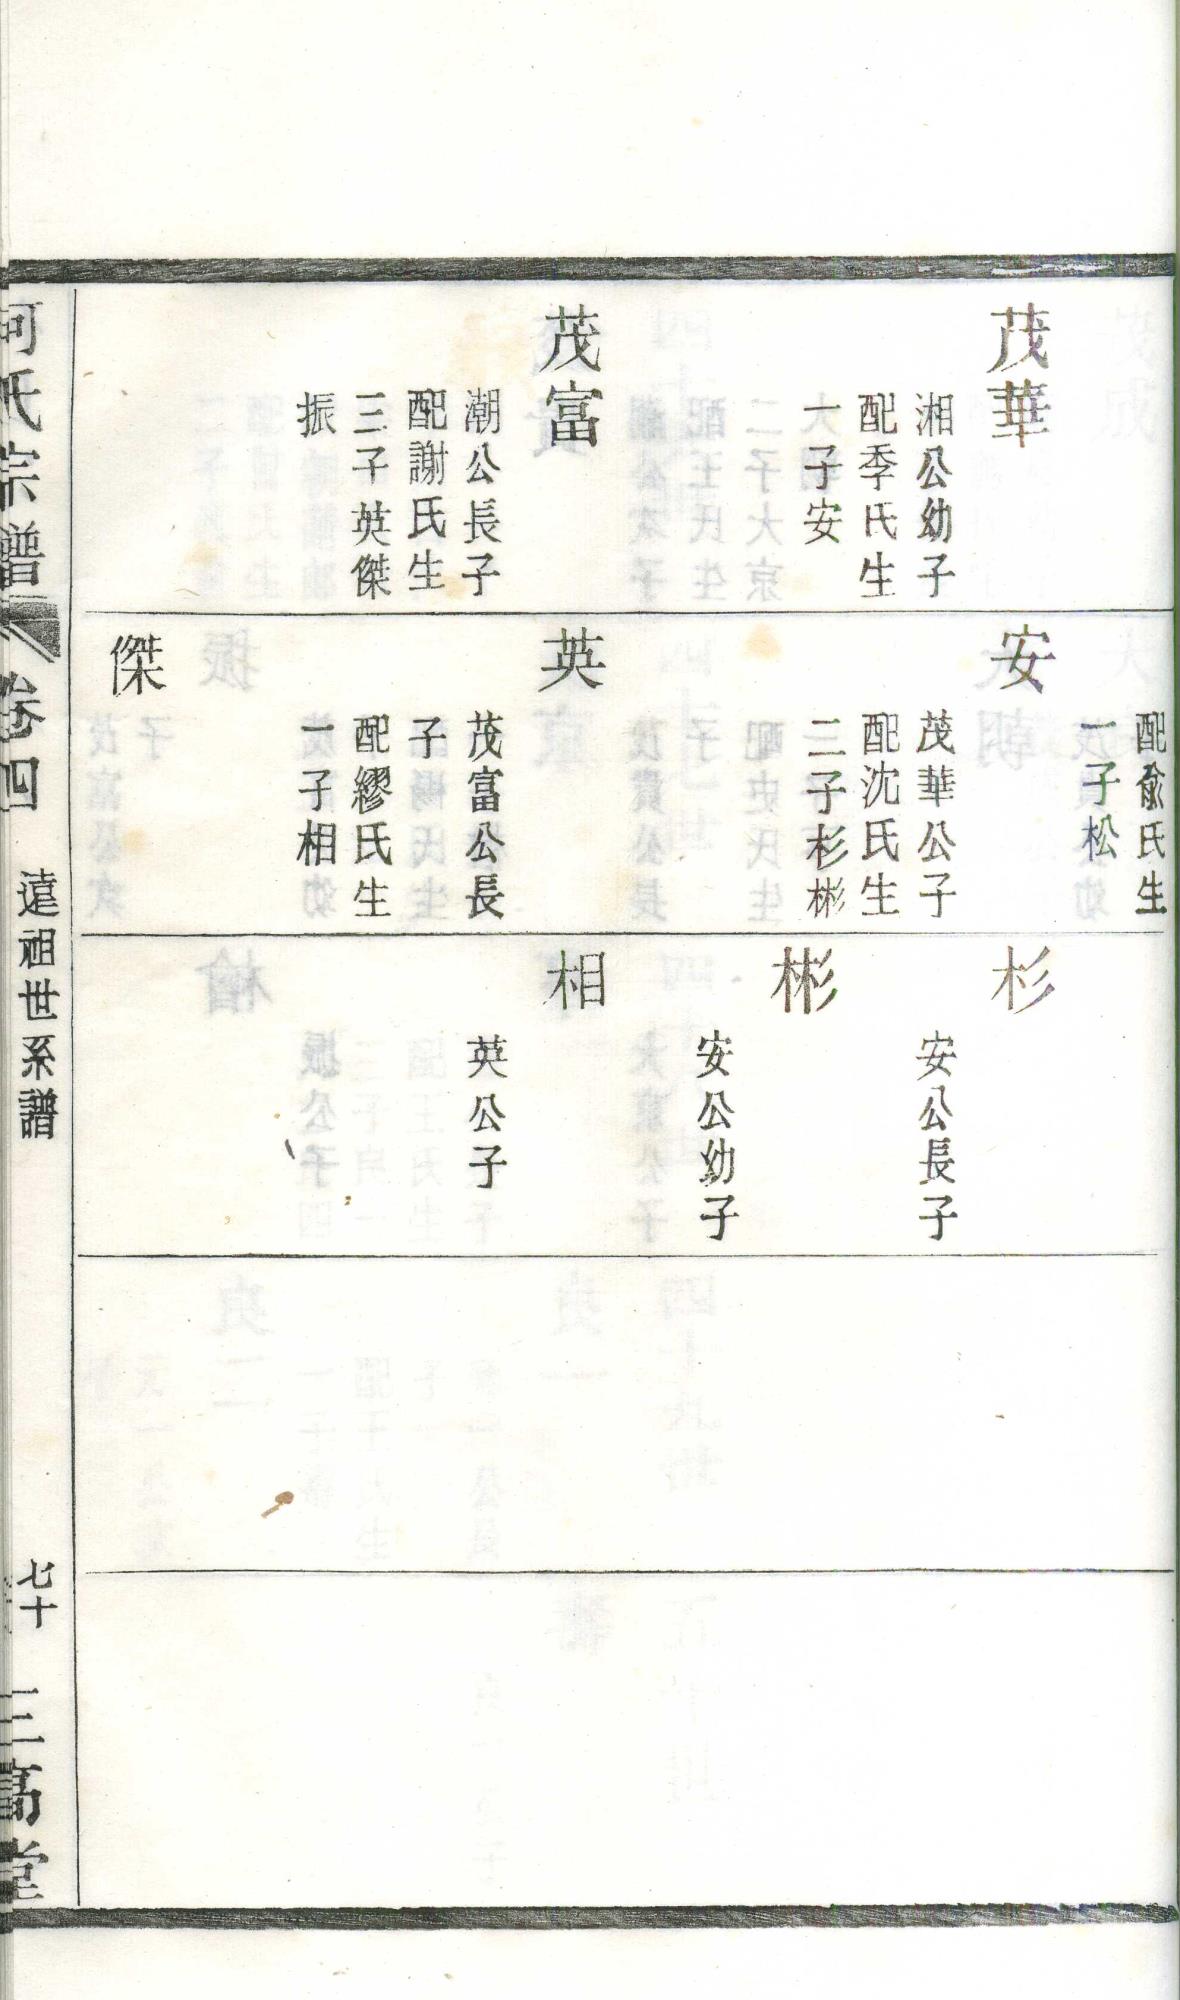 茂華
湘公幼子
配季氏生
一子安
茂富
潮公長子
配謝氏生
三子英傑
振
配俞氏生
一子松
安
茂華公子
配沈氏生
二子杉彬
英
茂富公長
子
配繆氏生
一子相
傑
杉
安公長子
彬
安公幼子
相
英公子
何氏宗譜
卷四
遠祖世系譜
七十
三高堂